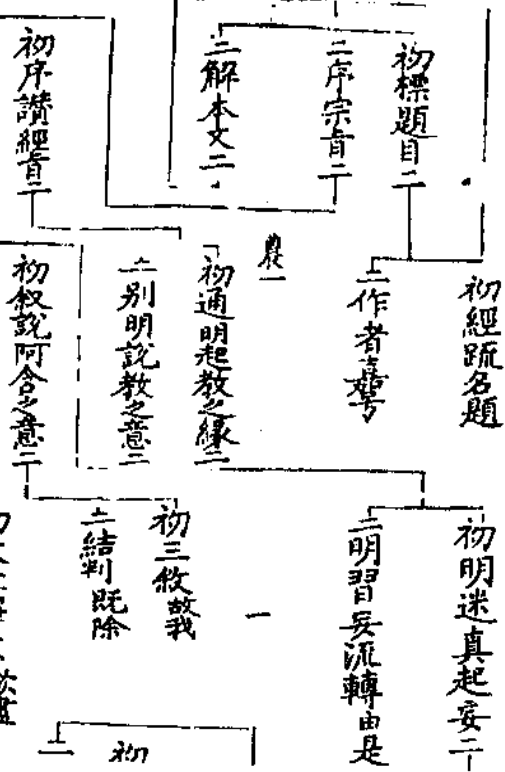 初標題目二
二序宗旨二
二解本文二
初序讃經旨二
初經䟽名題
二作者嘉号
教一
初通明起教之縁二
二别明説教之意二
初叙説阿含之意二
初明迷真起妄二
二明習妄流轉由是
一
初三叙故我
二結判既除
初
二